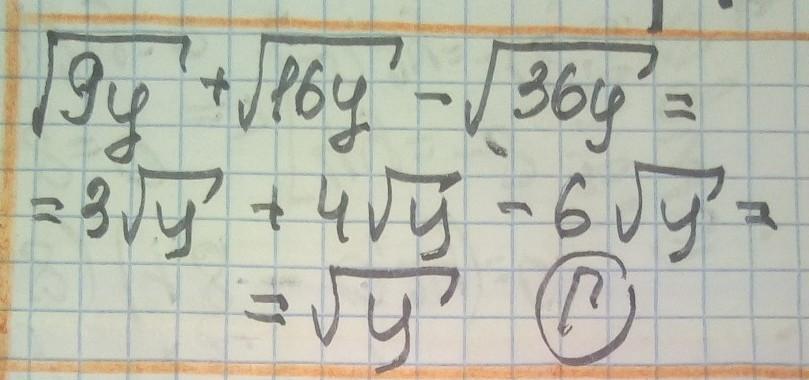 √9y + √16y - √36y =
= 3√y + 4√y - 6√y =
= √y Г